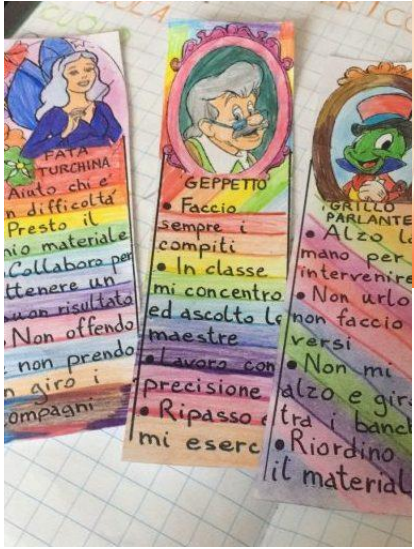 FATA
TURCHINA
Aiuto chi e'
n difficoltá
Presto il
io materiale
Collaboro per
ttenere un
uon risultato
Non offendo
non prendo
n giro i
ompagni
GEPPETTO
• Faccio
sempre i
compiti
• In classe
mi concentro
ed ascolto le
maestre
• Lavoro con
precisione
• Ripasso e
mi eserc
GRILLO
PARLANTE
• Alzo l
mano per
intervenire
• Non urlo
non faccio
versi
• Non mi
alzo e gir
tra i banch
• Riordino
il material